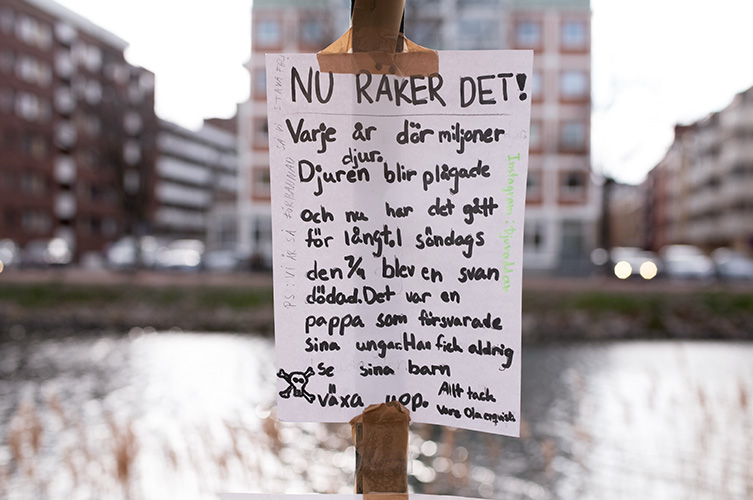 NU RÄKER DET!
Varje år dör miljoner
djur.
Djuren blir plågade
och nu har det gått
för långt. I söndags
den 7/4 blev en svan
dödad. Det var en
pappa som försvarade
sina ungar. Han fick aldrig
se sina barn
växa upp.
Allt tack
vare
PS: VI ÄR SÅ FÖRBANNAD SÅ VI
Instagram: